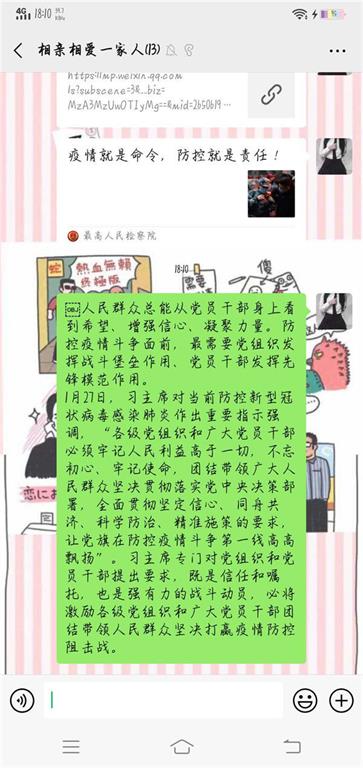 4G 18:10 39.7 KB/s
相亲相爱一家人(13)
https://mp.weixin.qq.com
1s?subscene=3&..biz=
MzA3MzUwOTIyMg==&mid=2650619…
疫情就是命令，防控就是责任！
最高人民检察院
熱血無賴
終極版
蛇
18:10
需要
傻
OBJ人民群众总能从党员干部身上看
到希望、增强信心、凝聚力量。防
控疫情斗争面前，最需要党组织发
挥战斗堡垒作用、党员干部发挥先
锋模范作用。
1月27日，习主席对当前防控新型冠
状病毒感染肺炎作出重要指示强
调，“各级党组织和广大党员干部
必须牢记人民利益高于一切，不忘
初心、牢记使命，团结带领广大人
民群众坚决贯彻落实党中央决策部
署，全面贯彻坚定信心、同舟共
济、科学防治、精准施策的要求，
让党旗在防控疫情斗争第一线高高
飘扬”。习主席专门对党组织和党
员干部提出要求，既是信任和嘱
托，也是强有力的战斗动员，必将
激励各级党组织和广大党员干部团
结带领人民群众坚决打赢疫情防控
阻击战。
恋にお